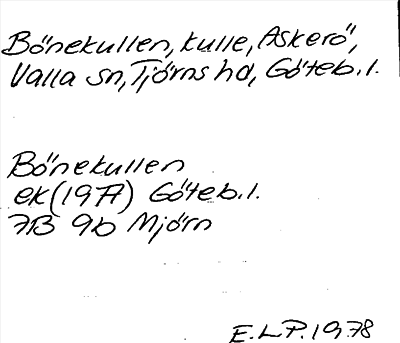 Bönekullen, kulle, Askerö,
Valla sn, Tjörns hd, Göteb. l.
Bönekullen
ek (1977) Göteb. l.
7B 9b Mjörn
E.L.P. 1978